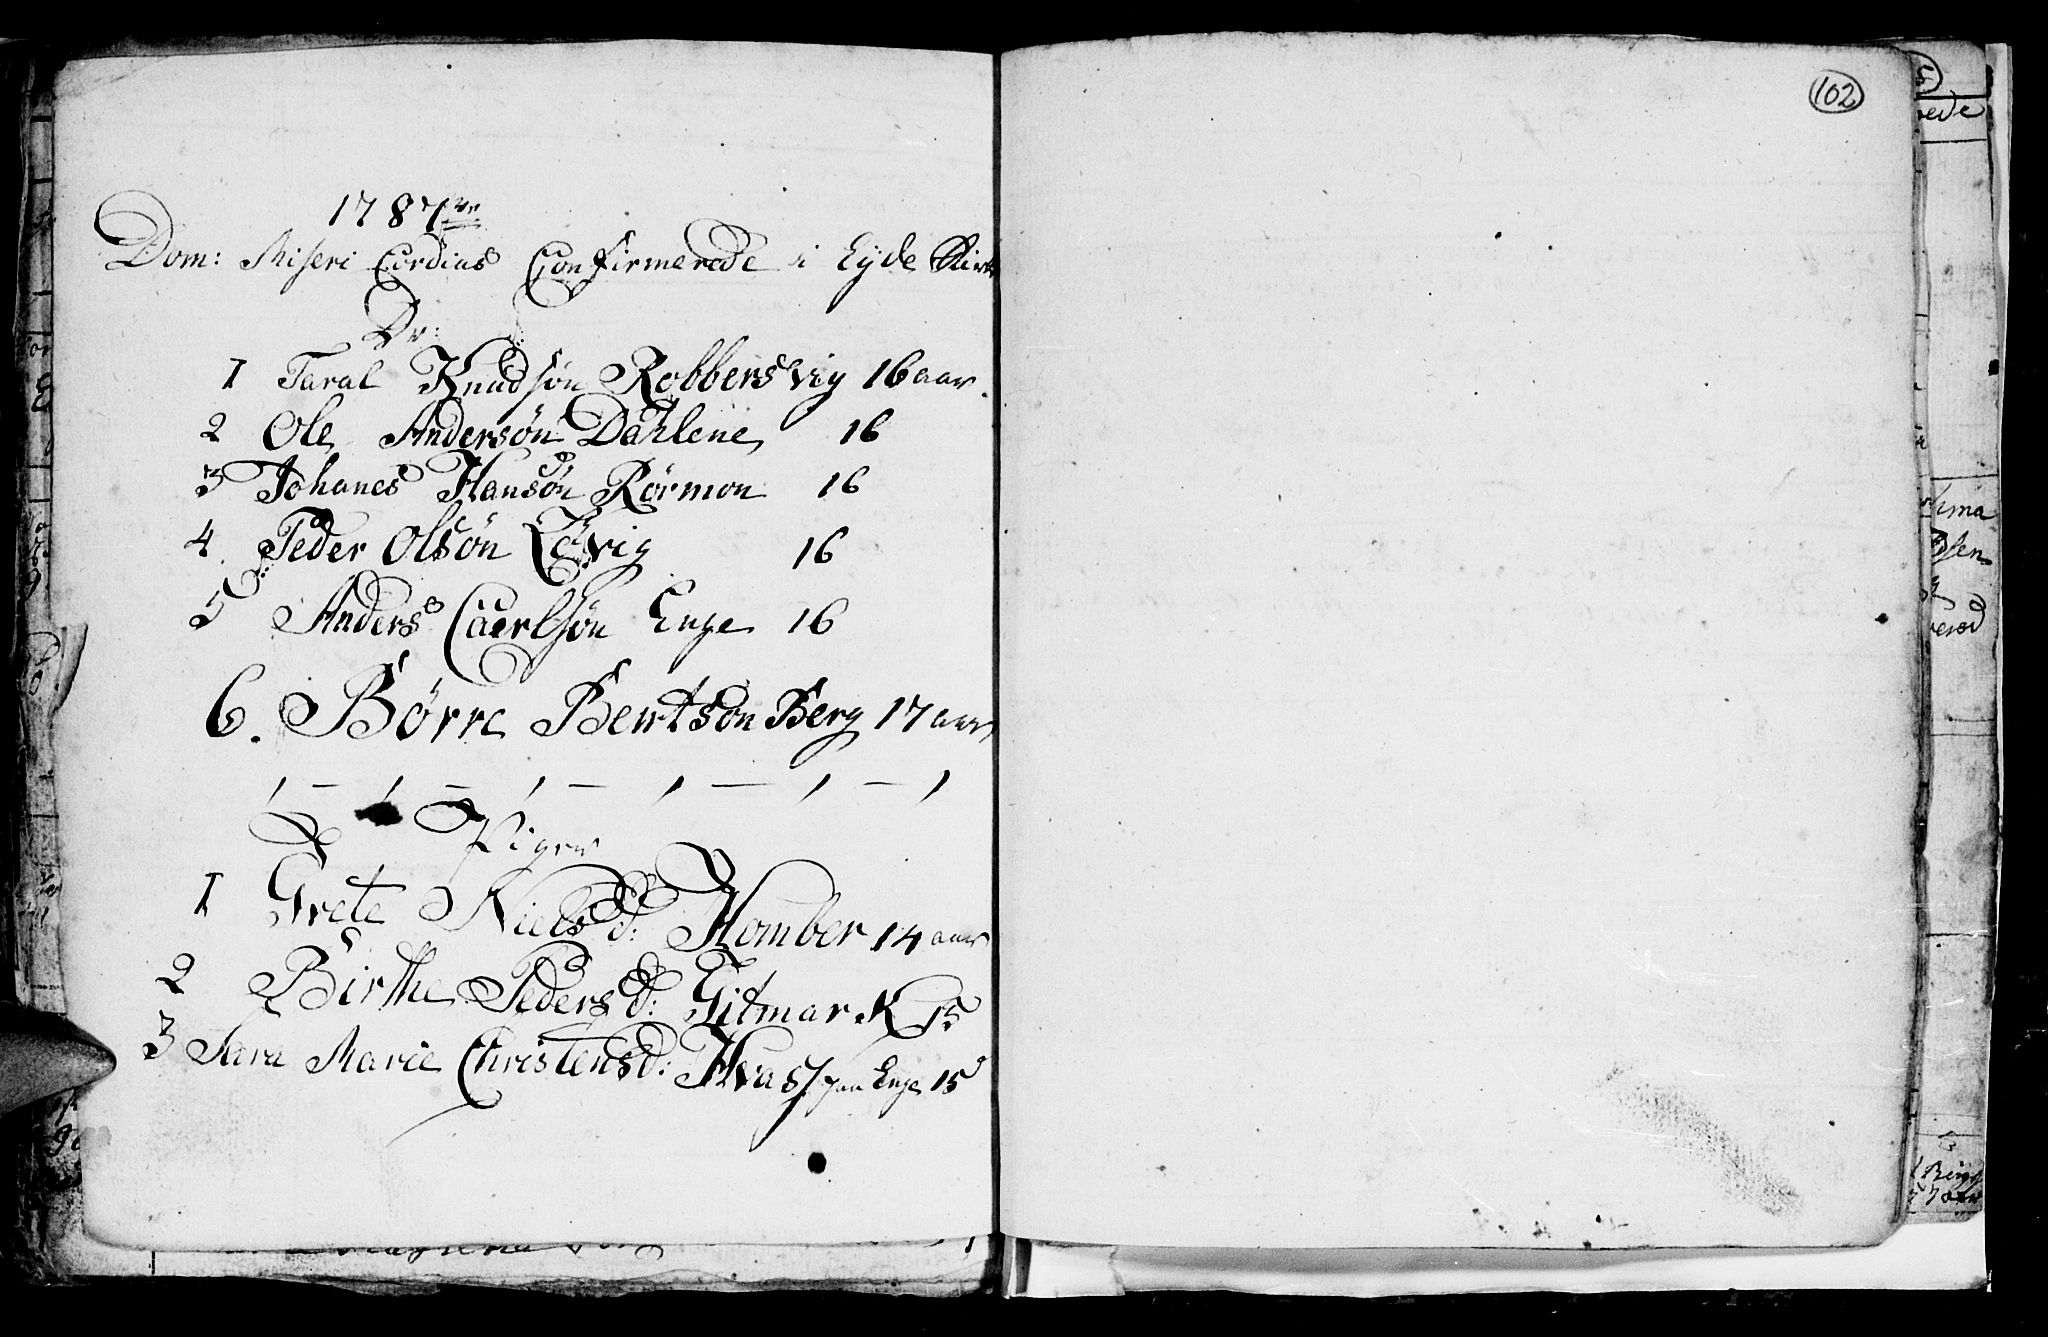 1787
Dom: Miseri Cordias Confirmerede i Eyde Kirk
Dr:
1 Taral Knudsøn Robbersvig 16 aar.
2 Ole Andersøn Dahlene 16
3 Johanes Hansøn Rørmon 16
4. Peder Olsøn Løvig 16
5 Anders Caerlsøn Enge 16
6. Børre Bentsøn Berg 17 aar
Piger
1 Grete Nielsd: Homber 14 aar
2 Birthe Pedersd: Gitmark 15
3 Sara Marie Christensd: Hvas paa Enge 15
102